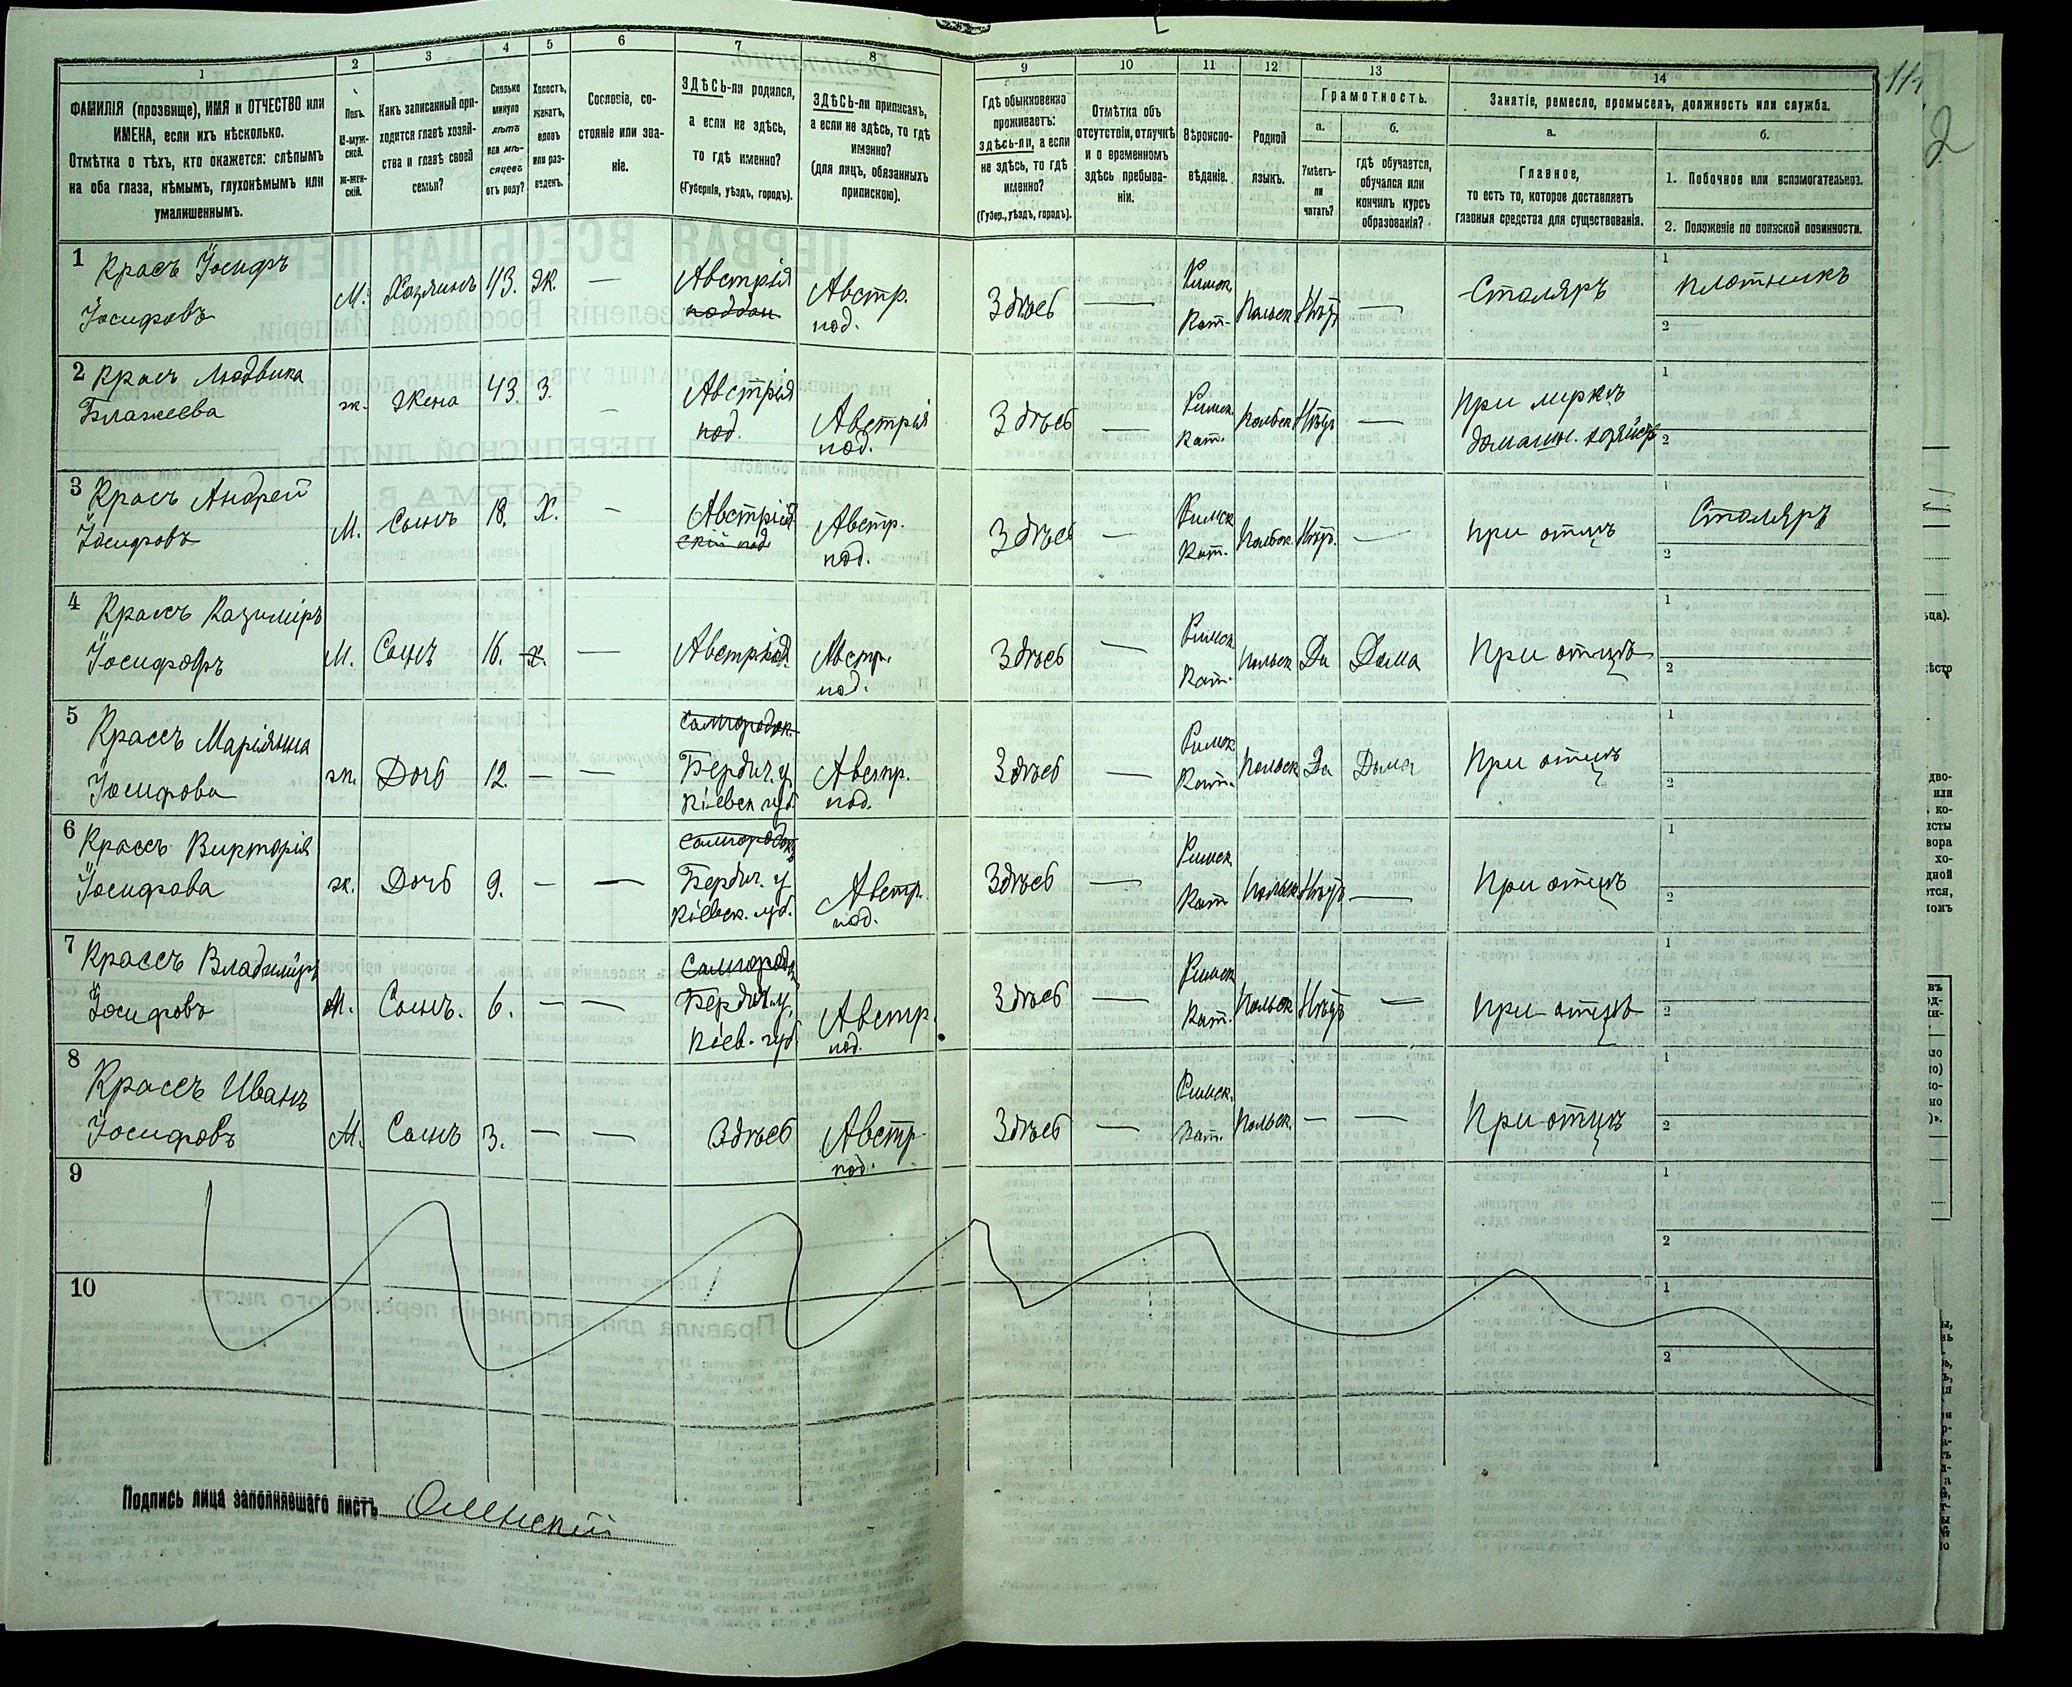 114
2
1
2
3
4
5
6
7
8
ФАМИЛІЯ (прозвище), ИМЯ и ОТЧЕСТВО или
ИМЕНА, если ихъ нѣсколько.
Отмѣтка о тѣхъ, кто окажется: слѣпымъ
на оба глаза, нѣмымъ, глухонѣмымъ или
умалишеннымъ.
Полъ.
М-муж-
ской.
Ж-жен-
скій.
Какъ записанный при-
ходится главѣ хозяй-
ства и главѣ своей
семьи?
Сколько
минуло
лѣтъ
или мѣ-
сяцевъ
отъ роду?
Холостъ,
женатъ,
вдовъ
или раз-
веденъ.
Сословіе, со-
стояніе или зва-
ніе.
ЗДѢСЬ-ли родился,
а если не здѣсь,
то гдѣ именно?
(Губернія, уѣздъ, городъ).
ЗДѢСЬ-ли приписанъ,
а если не здѣсь, то гдѣ
именно?
(для лицъ, обязанныхъ
припискою).
9
10
11
12
13
14
Гдѣ обыкновенно
проживаетъ:
здѣсь-ли, а если
не здѣсь, то гдѣ
именно?
(Губер., уѣздъ, городъ).
Отмѣтка объ
отсутствіи, отлучкѣ
и о временномъ
здѣсь пребыва-
ніи.
Вѣроиспо-
вѣданіе.
Родной
языкъ.
Грамотность.
а.
Умѣетъ-
ли
читать?
б.
гдѣ обучается,
обучался или
кончилъ курсъ
образованія?
Занятіе, ремесло, промыселъ, должность или служба.
а.
Главное,
то есть то, которое доставляетъ
главныя средства для существованія.
б.
1. Побочное или вспомогательное.
2. Положеніе по воинской повинности.
1 Красъ Іосифъ
Іосифовъ
М. Хозяинъ 43. Ж. —
Австрія
поддан
Австр.
под.
Здѣсь —
Римск.
Кат.
Польск. Нѣтъ —
Столяръ
1 Плотникъ
2
2 Красъ Людвика
Блажеева
ж. Жена 43. З. —
Австрія
под.
Австрія
под.
Здѣсь —
Римск.
Кат.
Польск Нѣтъ —
При мужѣ
домашн. хозяйств
1
2
3 Красъ Андрей
Іосифовъ
М. Сынъ 18. Х. —
Австрій
скій под
Австр.
под.
Здѣсь —
Римск
Кат.
Польск. Нѣтъ. —
При отцѣ
1 Столяръ
2
4 Красъ Казиміръ
Іосифовъ
М. Сынъ 16. Х. —
Австр. под.
Австр.
под.
Здѣсь —
Римск
Кат.
Польск Да Дома
При отцѣ
1
2
5 Крассъ Маріянна
Іосифова
ж. Дочь 12. — —
Самгородок
Бердич. у.
Кіевск губ.
Австр.
под.
Здѣсь —
Римск.
Кат.
Польск Да Дома
При отцѣ
1
2
6 Крассъ Викторія
Іосифова
ж. Дочь 9. — —
Самгородокъ
Бердич. у
Кіевск. губ.
Австр.
под.
Здѣсь —
Римск.
Кат
Польск Нѣтъ —
При отцѣ
1
2
7 Крассъ Владиміръ
Іосифовъ
М. Сынъ. 6. — —
Самгородк
Бердич. у.
Кіев. губ
Австр.
под.
Здѣсь —
Римск
Кат.
Польск Нѣтъ —
При отцѣ
1
2
8 Крассъ Иванъ
Іосифовъ
М. Сынъ 3. — —
Здѣсь
Австр.
под.
Здѣсь —
Римск.
Кат.
Польск. — —
При отцѣ
1
2
9
1
2
10
1
2
Подпись лица заполнявшаго листъ